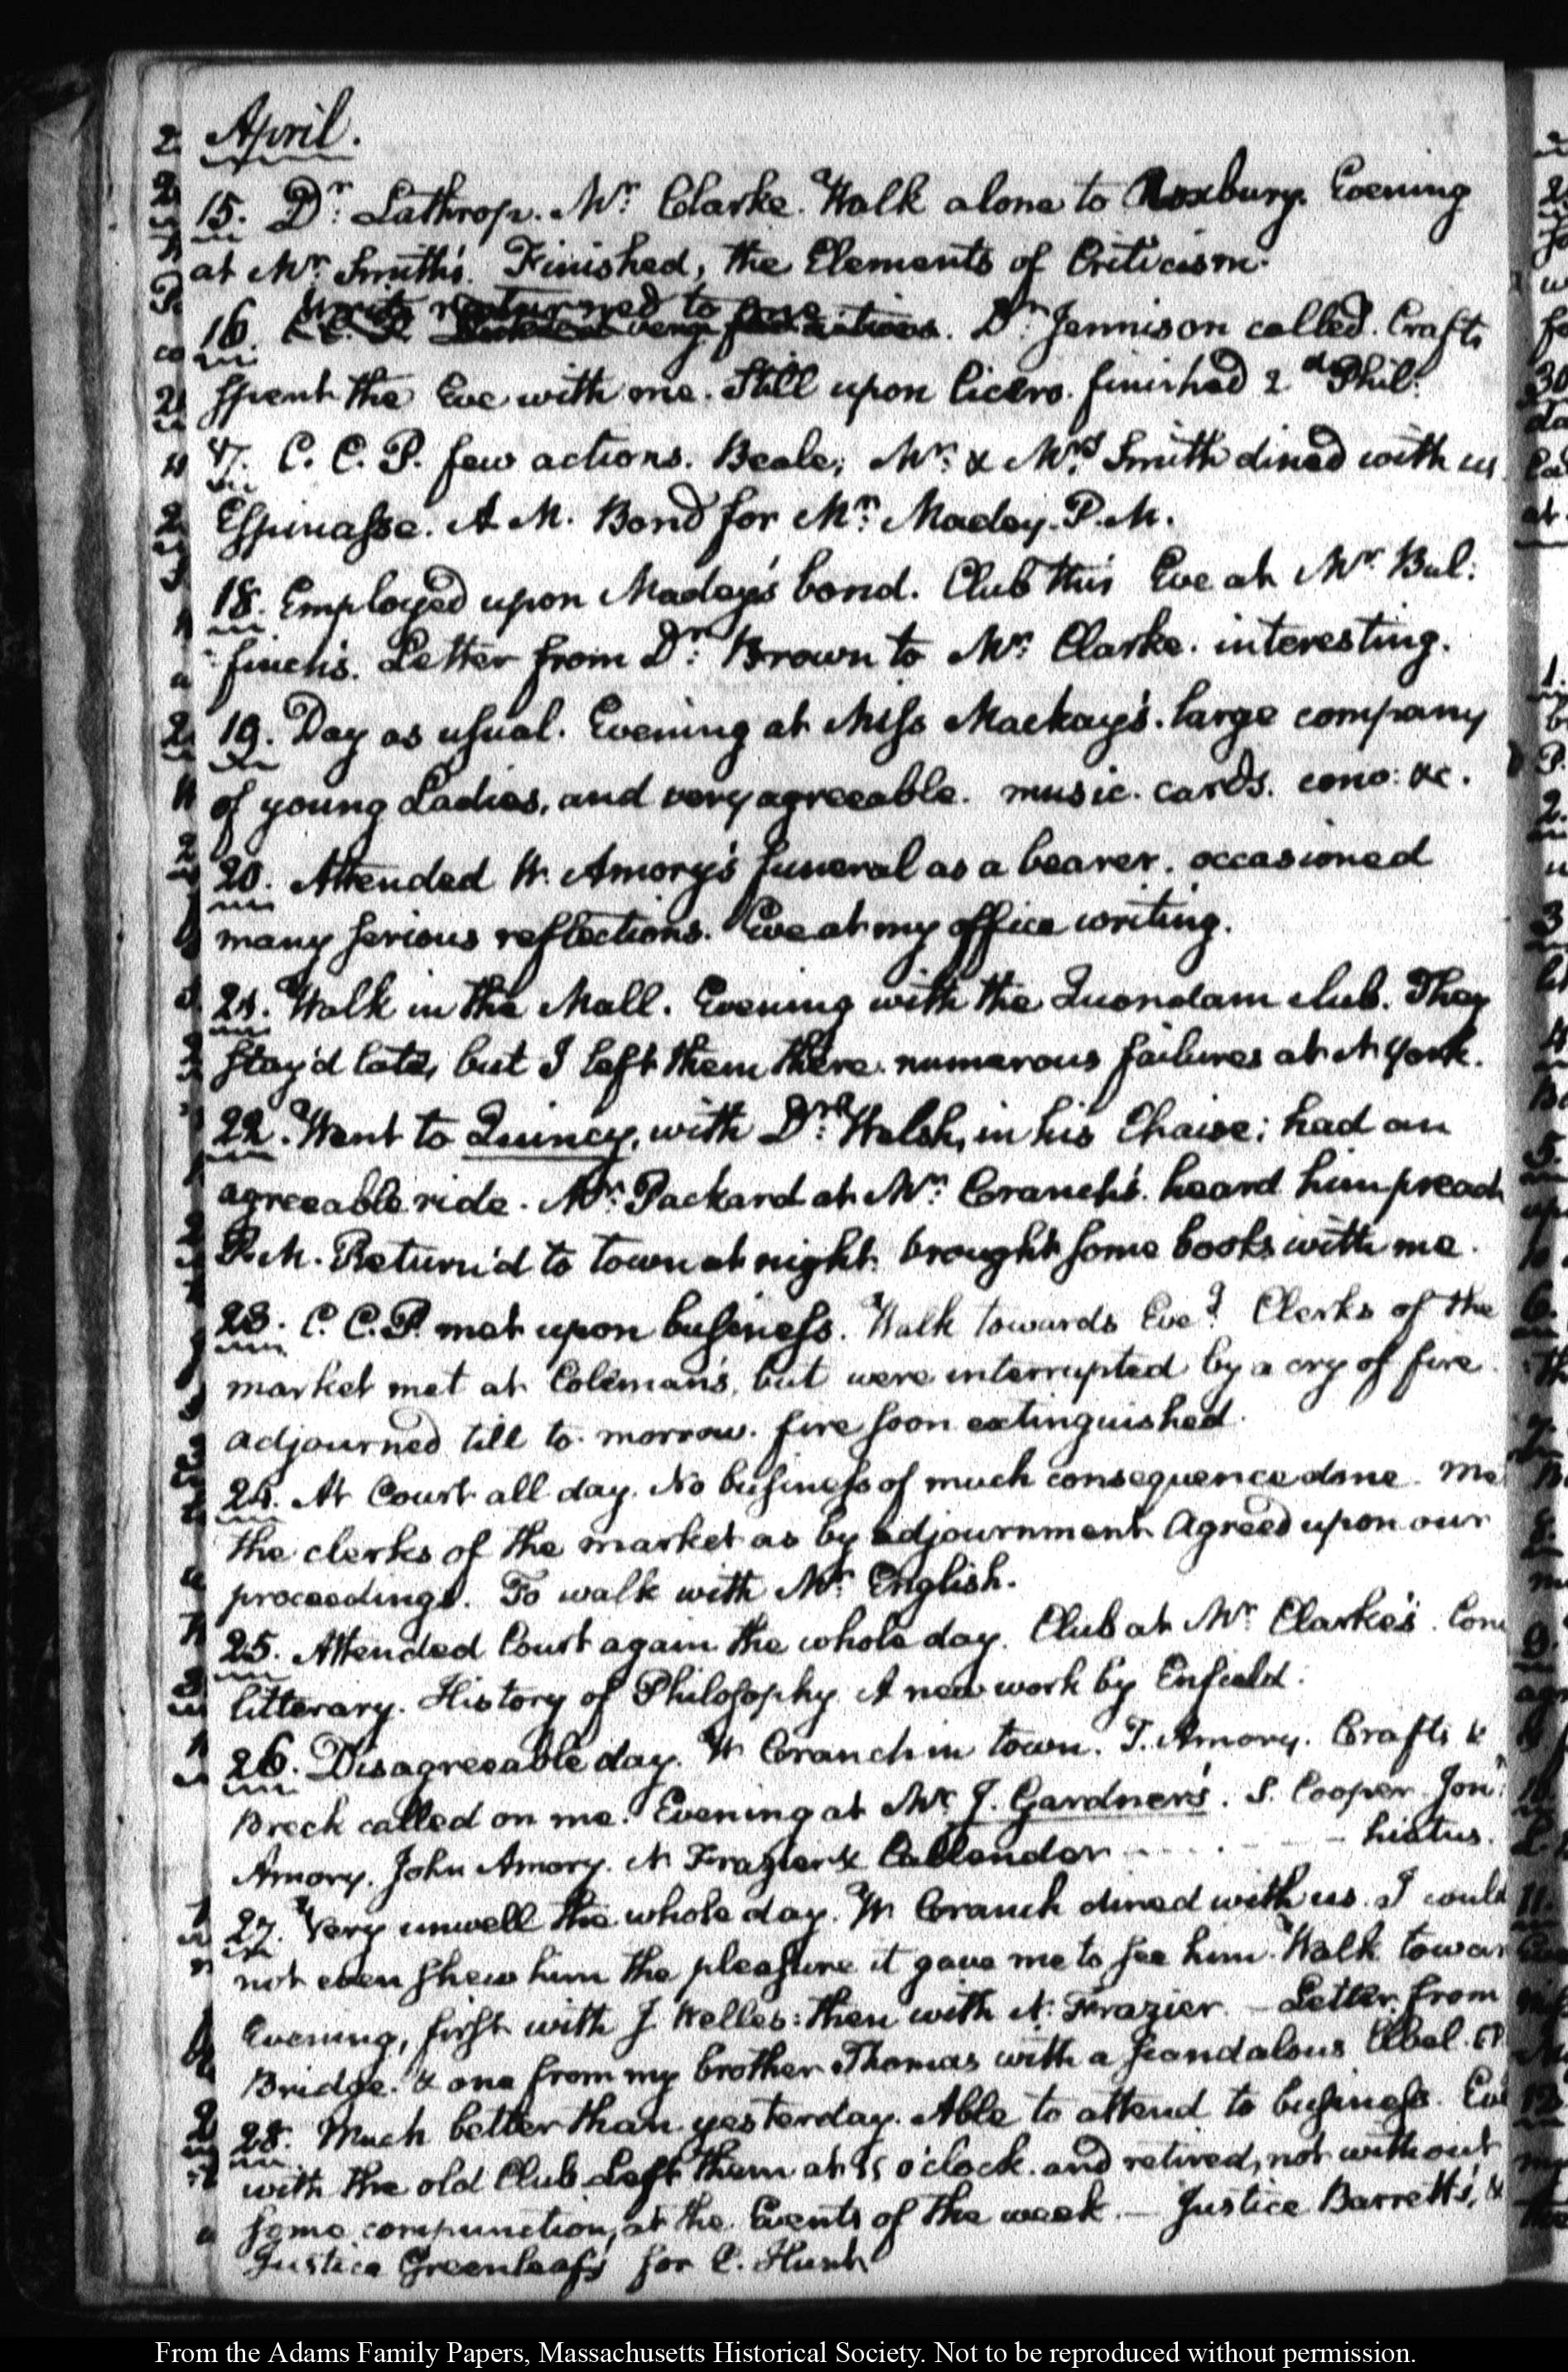 April.
15. Dr: Lathrop. Mr: Clarke. Walk alone to Roxbury. Evening
at Mr: Smith's. Finished, the Elements of Criticism.
16. Writs returned to
Dr: Jennison called. Crafts
spent the Eve with me. Still upon Cicero. finished 2d Phil:
17. C. C. P. few actions. Beale, Mr: & Mrs: Smith dined with us
Espinasse. A M. Bond for Mr: Madey. P. M.
18. Employed upon Madey's bond. Club this Eve at Mr: Bul:
finch's. Letter from Dr: Brown to Mr: Clarke. interesting.
19. Day as usual. Evening at Miss Mackay's. large company
of young Ladies, and very agreeable. music. cards. conv: &c.
20. Attended W. Amory's funeral as a bearer. occasioned
many serious reflections. Eve at my office writing.
21. Walk in the Mall. Evening with the Quondam club. They
stay'd late, but I left them there. numerous failures at N York.
22. Went to Quincy, with Dr: Welsh, in his Chaise; had an
agreeable ride. Mr: Packard at Mr: Cranch's. heard him preach
P. M. Return'd to town at night. brought some books with me.
23. C. C. P. met upon business. Walk towards Eveg. Clerks of the
market met at Coleman's, but were interrupted by a cry of fire.
adjourned till to-morrow. fire soon extinguished.
24. At Court all day. No business of much consequence done. Me
the clerks of the market as by adjournment. Agreed upon our
proceedings. To walk with Mr: English.
25. Attended Court again the whole day. Club at Mr: Clarke's. Con
litterary. History of Philosophy. A new work by Enfield.
26. Disagreeable day. W Cranch in town. T. Amory. Crafts &
Breck called on me. Evening at Mr: J. Gardner's. S. Cooper. Jon:
Amory. John Amory. N Frazier & Callender - - - - hiatus.
27. Very unwell the whole day. W Cranch dined with us. I could
not even shew him the pleasure it gave me to see him. Walk towar
Evening, first with J. Welles: then with N: Frazier. — Letter from
Bridge. & one from my brother Thomas with a scandalous libel.
28. Much better than yesterday. Able to attend to business. Eve
with the old Club. Left them at o'clock. and retired, not without
some compunction, at the Events of the week. — Justice Barrett's, &
Justice Greenleaf's for C.
From the Adams Family Papers, Massachusetts Historical Society. Not to be reproduced without permission.